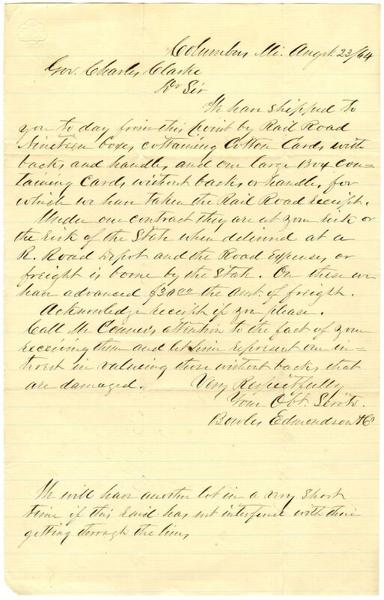 Columbus Mi. Augst 23/64
Gov. Charles Clarke
Dr Sir
We have shipped to
you to day from this point by Rail Road
Nineteen boxes containing Cotton Cards with
backs and handles, and one large Box con-
taining Cards without backs or handles, for
which we have taken the Rail Road receipt.
Under our contract they are at your risk or
the risk of the State when delivered at a
R. Road depot and the Road expenses or
freight is borne by the State. On these we
have advanced the Amt. of freight.
Acknowledge receipt if you please.
Call Mr attention to the fact of your
receiving them and let him represent our in-
terest in valueing those without backs that
are damaged. Very Respectfully
Your Obt Servts.
Bowles Edmondson & Co
We will have another lot in a very short
time if this raid has not interfered with their
getting through the lines